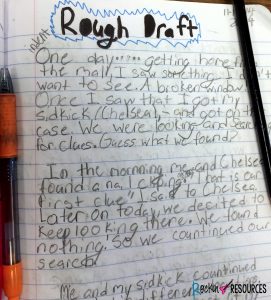 Rough Draft
indent
One day..... getting home from
the mall, I saw something I didn't
want to see. A broken window!
Once I saw that I got my
sidkick (Chelsea), and got on the
case. We were looking and
for clues. Guess what we found?
In the morning me and Chelsea
found a nail clipping. "That is our
first clue," I said to Chelsea.
Later on today we decited to
keep looking there. We found
nothing. So we countinued our
search
Me and my sidkick countinued
Rockin' RESOURCES